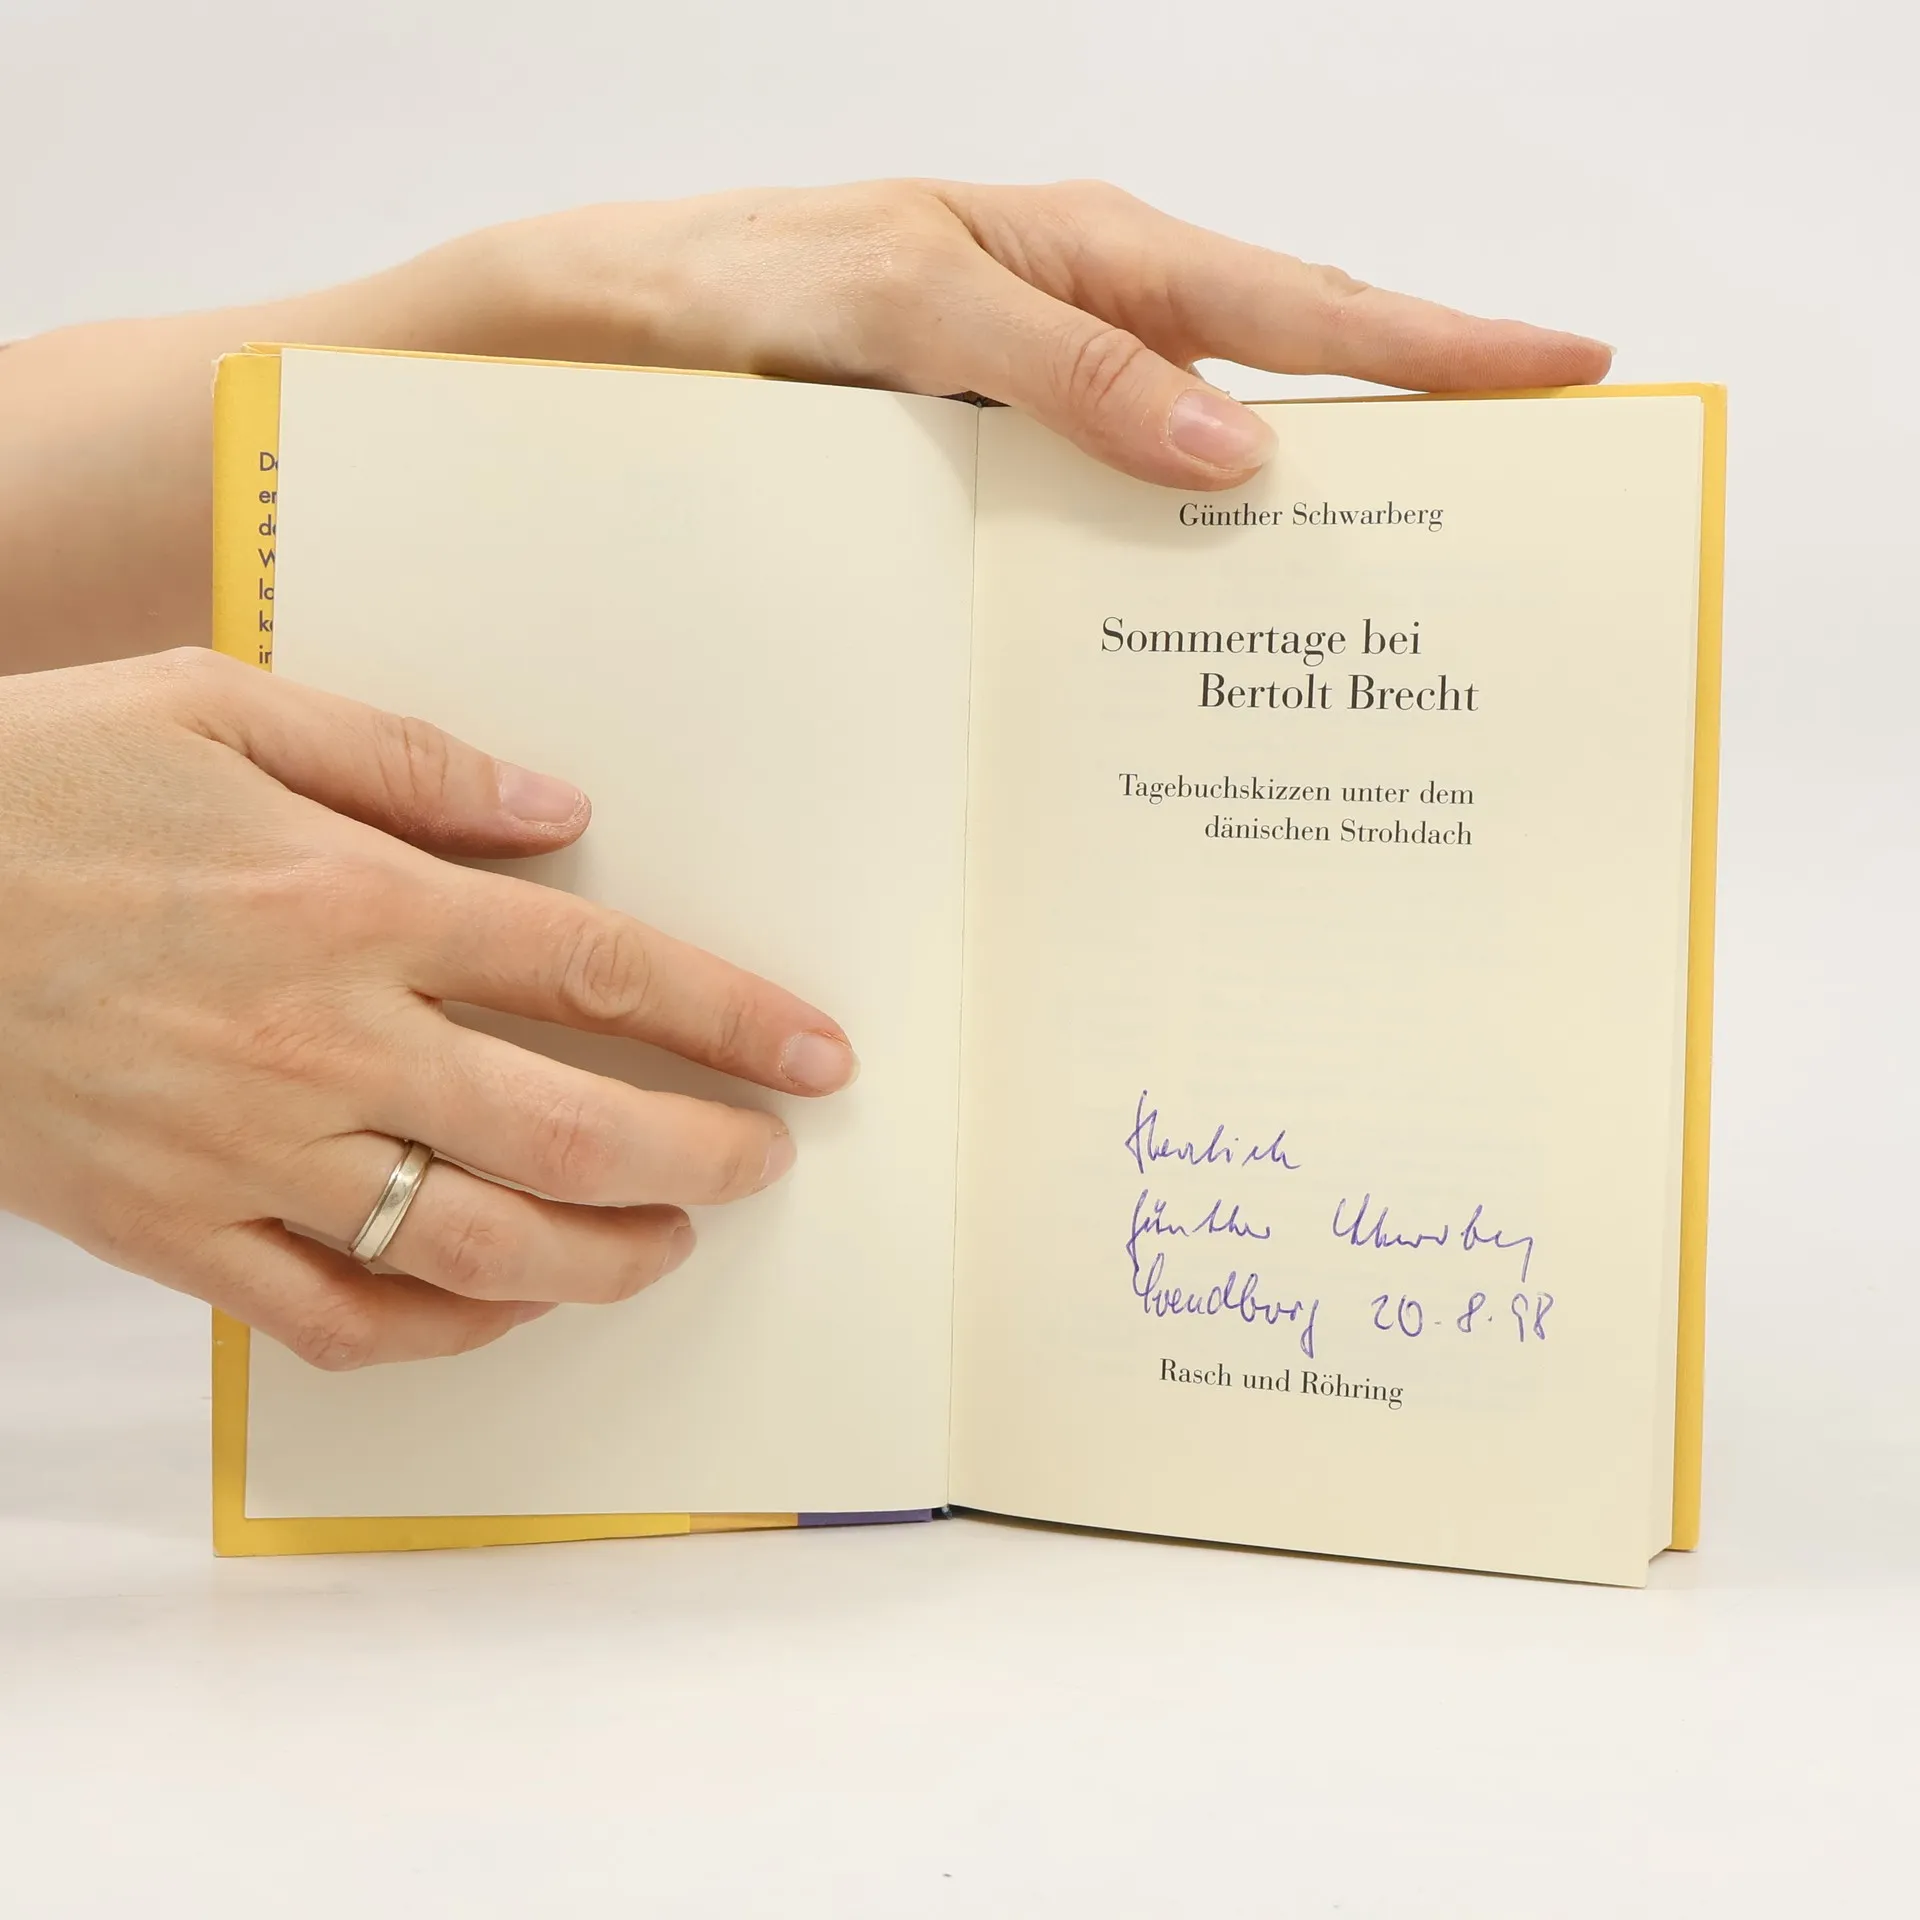 De
er
de
W
la
ke
in
Günther Schwarberg
Sommertage bei
Bertolt Brecht
Tagebuchskizzen unter dem
dänischen Strohdach
Herzlich
Günther Schwarberg
Svendborg 20.8.98
Rasch und Röhring